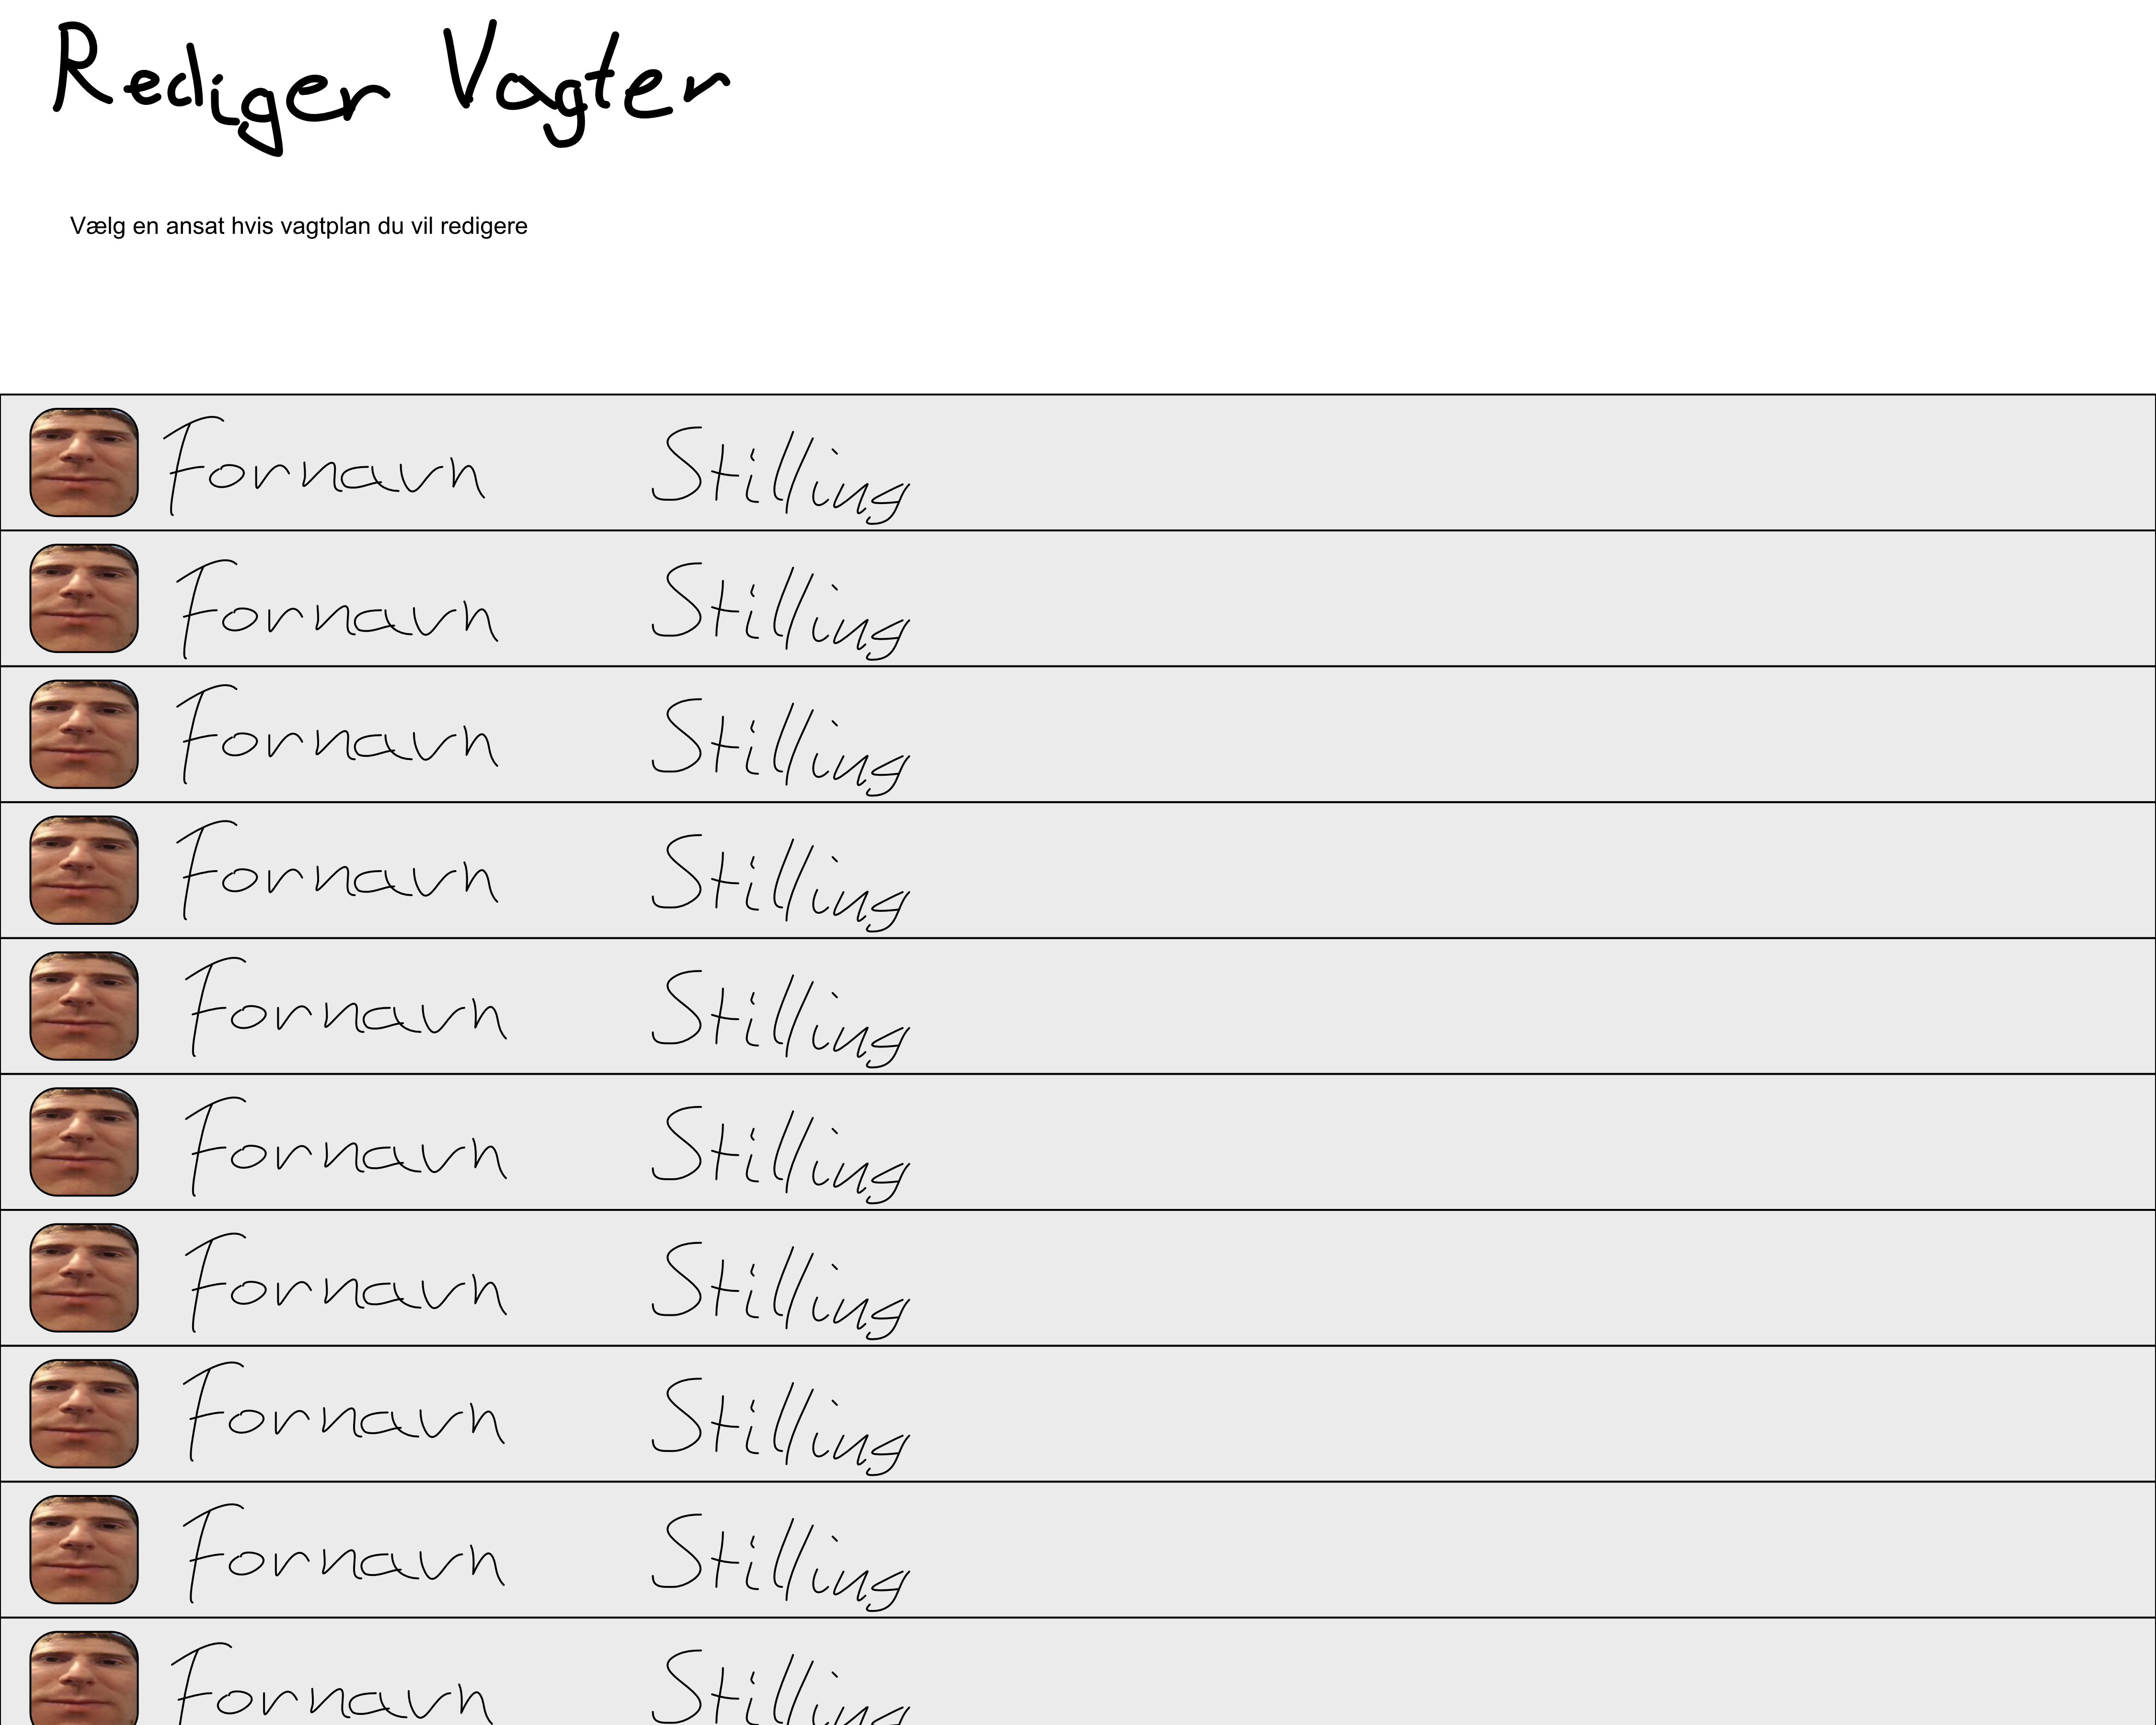 Rediger Vagter
Vælg en ansat hvis vagtplan du vil redigere
Fornavn Stilling
Fornavn Stilling
Fornavn Stilling
Fornavn Stilling
Fornavn Stilling
Fornavn Stilling
Fornavn Stilling
Fornavn Stilling
Fornavn Stilling
Fornavn Stilling